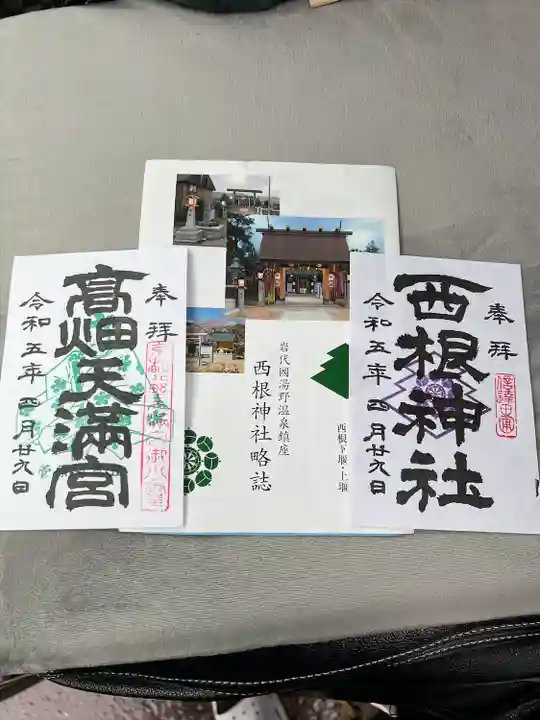 奉拝
西根神社
令和五年四月廿九日
岩代國湯野温泉鎮座
西根神社略誌
西根下堰・上堰
奉拝
高畑天満宮
令和五年四月廿九日